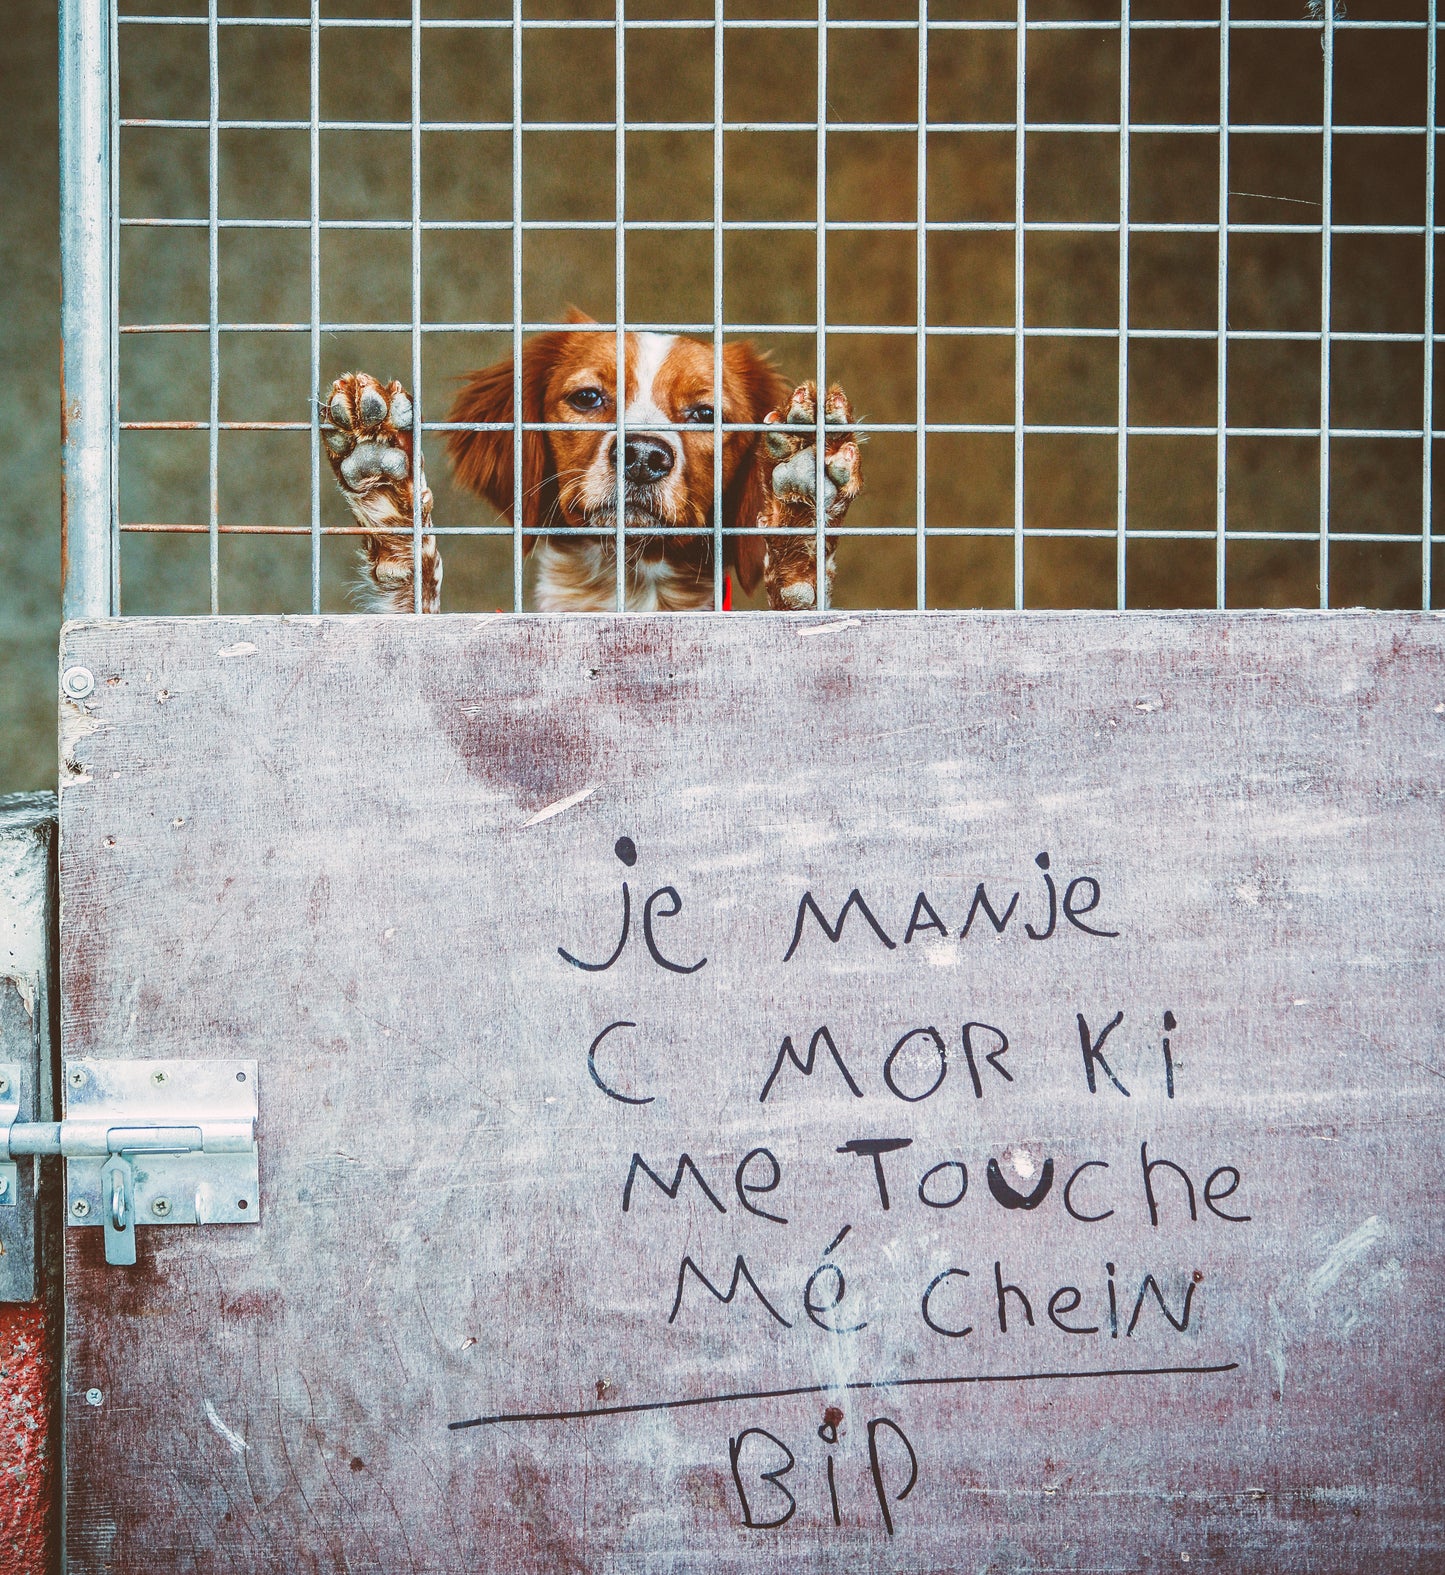 je MANje
C MOR Ki
Me Touche
Mé Chein
BiP